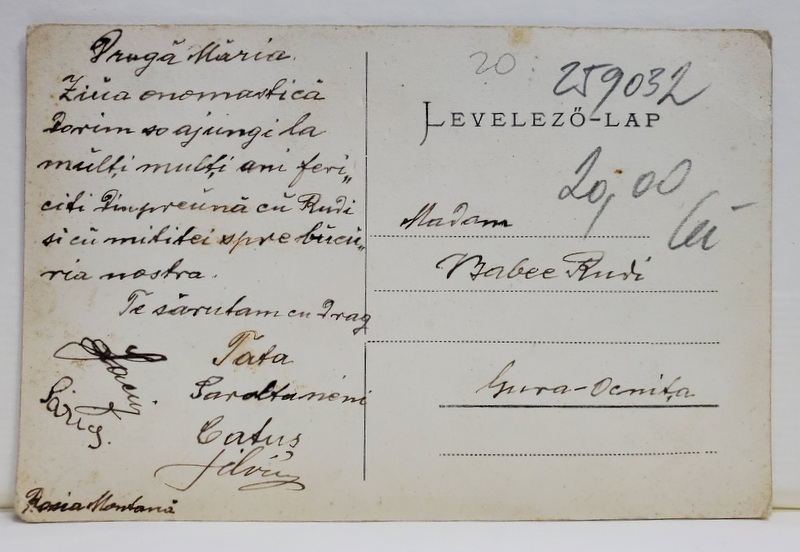 Dragă Măria.
Ziŭa onomastică
Dorim so ajungi la
mŭlți mulți ani feri„
citi Dinpreŭnă cŭ Rudi
si cŭ mititei spre bŭcŭ„
ria nostra.
Te sărutam cu Drag
Tata
Saroltaneni
Catus
Rosia Montană
20
259032
LEVELEZŐ-LAP
20,00
lei
Madam
Babee Rudi
Gura-Ocnița